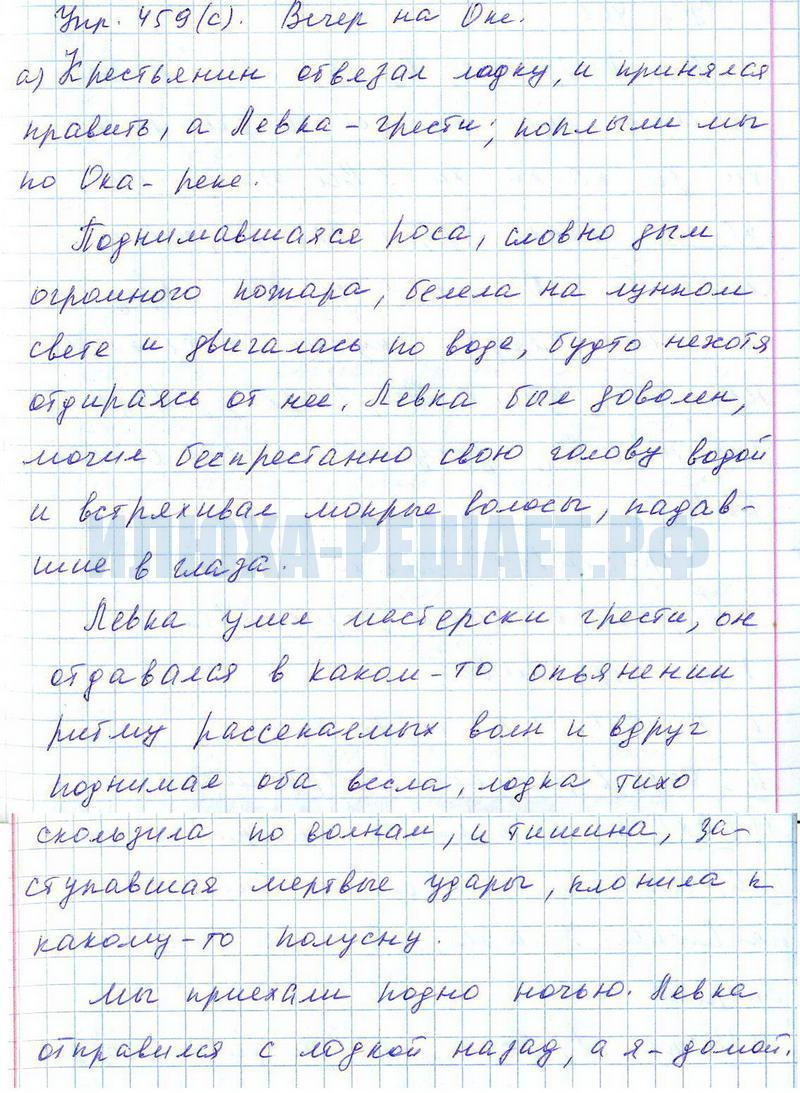 Упр. 459(с). Вечер на Оке.
а) Крестьянин отвязал лодку, и принялся
править, а Левка - грести; поплыли мы
по Ока-реке.
Поднимавшаяся роса, словно дым
огромного пожара, белела на лунном
свете и двигалась по воде, будто нехотя
отдираясь от нее. Левка был доволен,
мочил беспрестанно свою голову водой
и встряхивал мокрые волосы, падав-
шие в глаза.
ИЛЮХА-РЕШАЕТ.РФ
Левка умел мастерски грести, он
отдавался в каком-то опьянении
ритму рассекаемых волн и вдруг
поднимал оба весла, лодка тихо
скользила по волнам, и тишина, за-
ступавшая мертвые удары, клонила к
какому-то полусну.
Мы приехали подно ночью. Левка
отправился с лодкой назад, а я - домой.